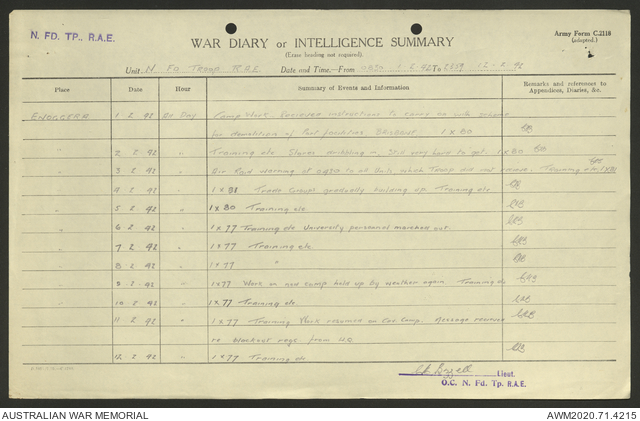 N. FD. TP. R.A.E.
WAR DIARY or INTELLIGENCE SUMMARY
(Erase heading not required).
Army Form C.2118
(adapted.)
Unit N FD TROOP R.A.E. Date and Time—From 0830 1 2 42 To 2359 12.2.42
Place Date Hour Summary of Events and Information Remarks and references to Appendices, Diaries, &c.
ENOGGERA 1 2 42 Day Camp Work. Received instructions to carry on with
for demolition of Port facilities Brisbane. 1 x 80
" 2 2 42 " Training etc Stores Still very hard to get. 1 x 80
" 3 2 42 " Air Raid warning of 0930 to all Units which Troop did not receive. Training etc. 1x81
" 4 2 42 " 1 x 81 Trade Groups gradually building up. Training etc.
" 5 2 42 " 1 x 80 Training etc.
" 6 2 42 " 1 x 77 Training etc University personnel marched out.
" 7 2 42 " 1x77 Training etc.
" 8 2 42 " 1x77 "
" 9 2 42 " 1x77 Work on new camp held up by weather again. Training etc
" 10 2 42 " 1 x 77 Training etc.
" 11 2 42 " 1 x 77 Training Work resumed on Camp. Message received
re blackout from H.Q.
" 12 2 42 " 1 x 77 Training etc
Lieut.
O.C. N. Fd. Tp. R.A.E.
AUSTRALIAN WAR MEMORIAL
AWM2020.71.4215